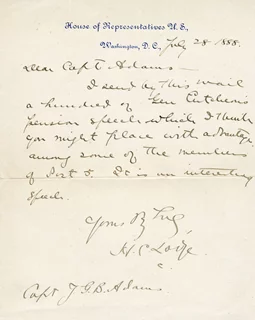 House of Representatives U. S.,
Washington, D. C., July 28 1888.
Dear Capt Adams -
I send by this mail
a hundred of Gen Cutcheon's
pension speech which I think
you might place with advantage
among some of the members
of Post 5. It is an interesting
speech.
Yours truly
H. C. Lodge
Capt J. G. B. Adams